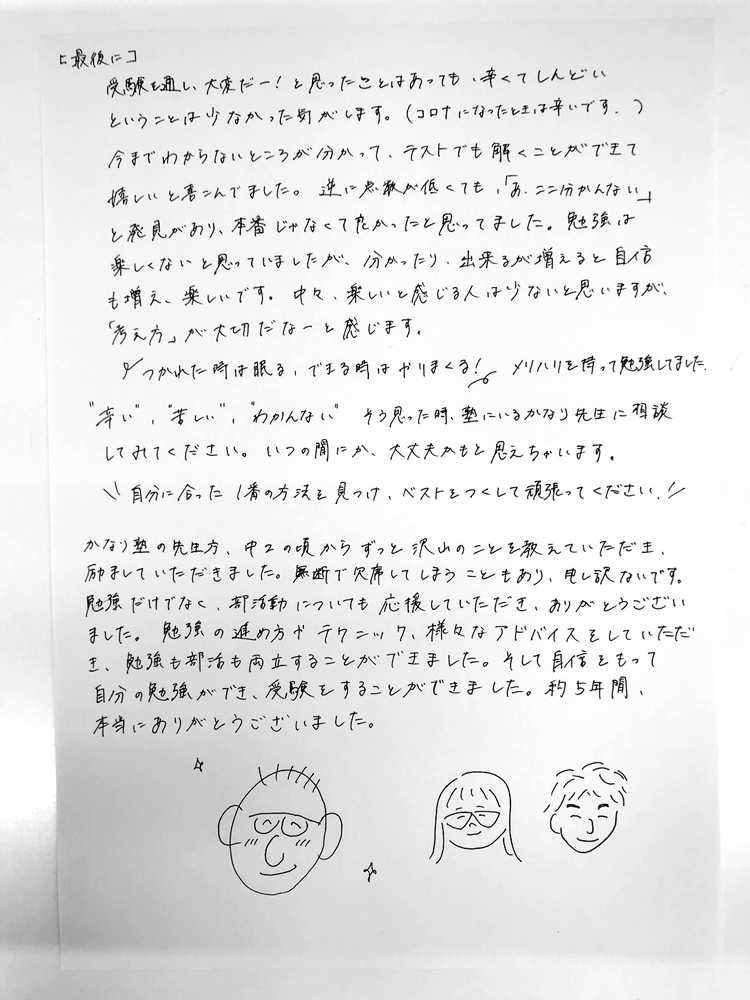 [最後に]
受験を通し、大変だー！と思ったことはあっても、辛くてしんどい
ということは少なかった気がします。(コロナになったときは辛いです.)
今までわからないところが分かって、テストでも解くことができて
嬉しいと喜こんでました。逆に点数が低くても、「あ、ここ分かんない」
と発見があり、本番じゃなくて良かったと思ってました。勉強は
楽しくないと思っていましたが、分かったり、出来るが増えると自信
も増え、楽しいです。中々、楽しいと感じる人は少ないと思いますが、
「考え方」が大切だなーと感じます。
つかれた時は眠る、できる時はやりまくる！ メリハリを持って勉強してました.
"辛い"、"苦しい"、"わかんない" そう思った時、塾にいるかなり先生に相談
してみてください。いつの間にか、大丈夫かもと思えちゃいます。
\\ 自分に合った1番の方法を見つけ、ベストをつくして頑張ってください.! //
かなり塾の先生方、中2の頃からずっと沢山のことを教えていただき、
励ましていただきました。無断で欠席してしまうこともあり、申し訳ないです。
勉強だけでなく、部活動についても応援していただき、ありがとうござい
ました。勉強の進め方やテクニック、様々なアドバイスをしていただ
き、勉強も部活も両立することができました。そして自信をもって
自分の勉強ができ、受験をすることができました。約5年間、
本当にありがとうございました。